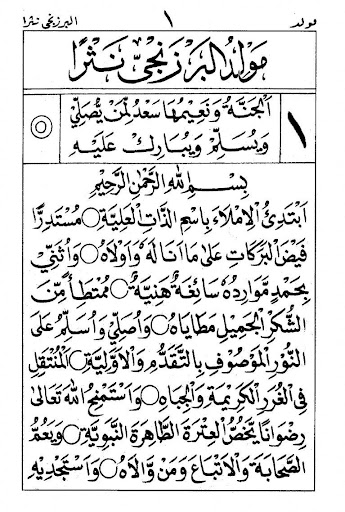 مولد ١ البرزنجي نثرا
مَوْلِدُ الْبَرْزَنْجِيِّ نَثْرًا
اَلْجَنَّةُ وَنَعِيْمُهَا سَعْدٌ لِمَنْ يُصَلِّيْ
وَيُسَلِّمُ وَيُبَارِكُ عَلَيْهِ
١
بِسْمِ اللهِ الرَّحْمٰنِ الرَّحِيْمِ
اَبْتَدِئُ الْاِمْلَاءَ بِاسْمِ الذَّاتِ الْعَلِيَّةِ ○ مُسْتَدِرًّا
فَيْضَ الْبَرَكَاتِ عَلٰى مَا اَنَالَهُ وَاَوْلَاهُ ○ وَاُثَنِّيْ
بِحَمْدٍ مَوَارِدُهُ سَائِغَةٌ هَنِيَّةٌ ○ مُمْتَطِأً مِّنَ
الشُّكْرِ الْجَمِيْلِ مَطَايَاهُ ○ وَاُصَلِّيْ وَاُسَلِّمُ عَلَى
النُّوْرِ الْمَوْصُوْفِ بِالتَّقَدُّمِ وَالْاَوَّلِيَّةِ ○ اَلْمُنْتَقِلِ
فِى الْغُرَرِ الْكَرِيْمَةِ وَالْجِبَاهِ ○ وَاَسْتَمْنِحُ اللهَ تَعَالٰى
رِضْوَانًا يَّخُصُّ الْعِتْرَةَ الطَّاهِرَةَ النَّبَوِيَّةَ ○ وَيَعُمُّ
الصَّحَابَةَ وَالْاَتْبَاعَ وَمَنْ وَّالَاهُ ○ وَاَسْتَجْدِيْهِ